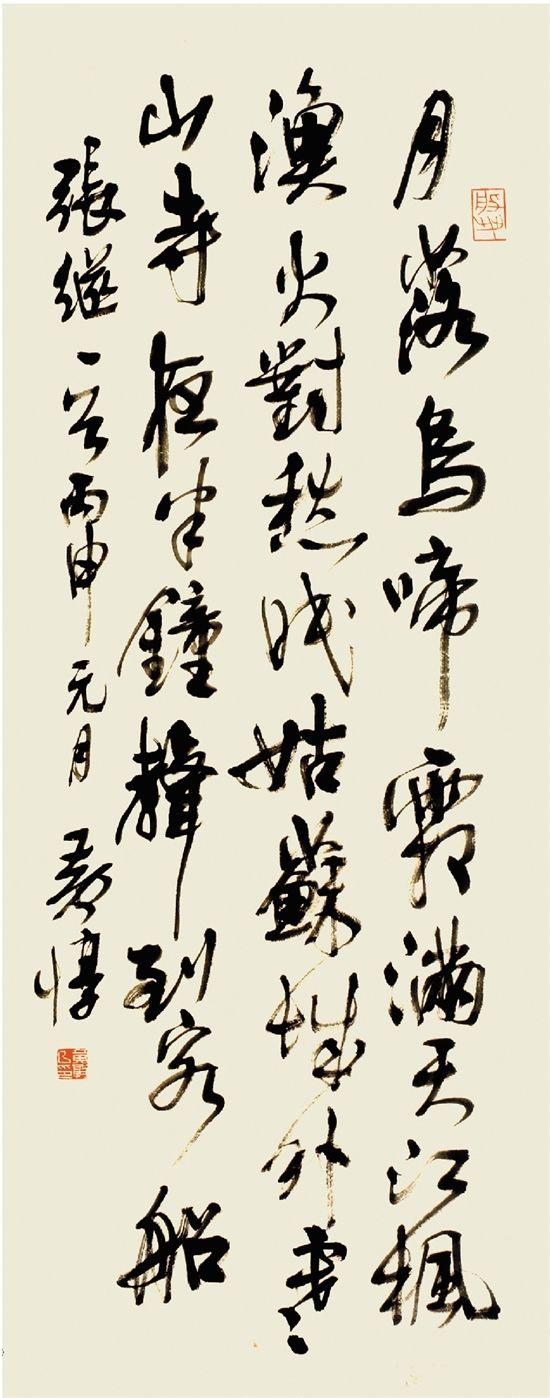 月落烏啼霜滿天江楓
漁火對愁眠姑蘇城外寒
山寺夜半鐘聲到客船
張繼一首丙申元月黃惇